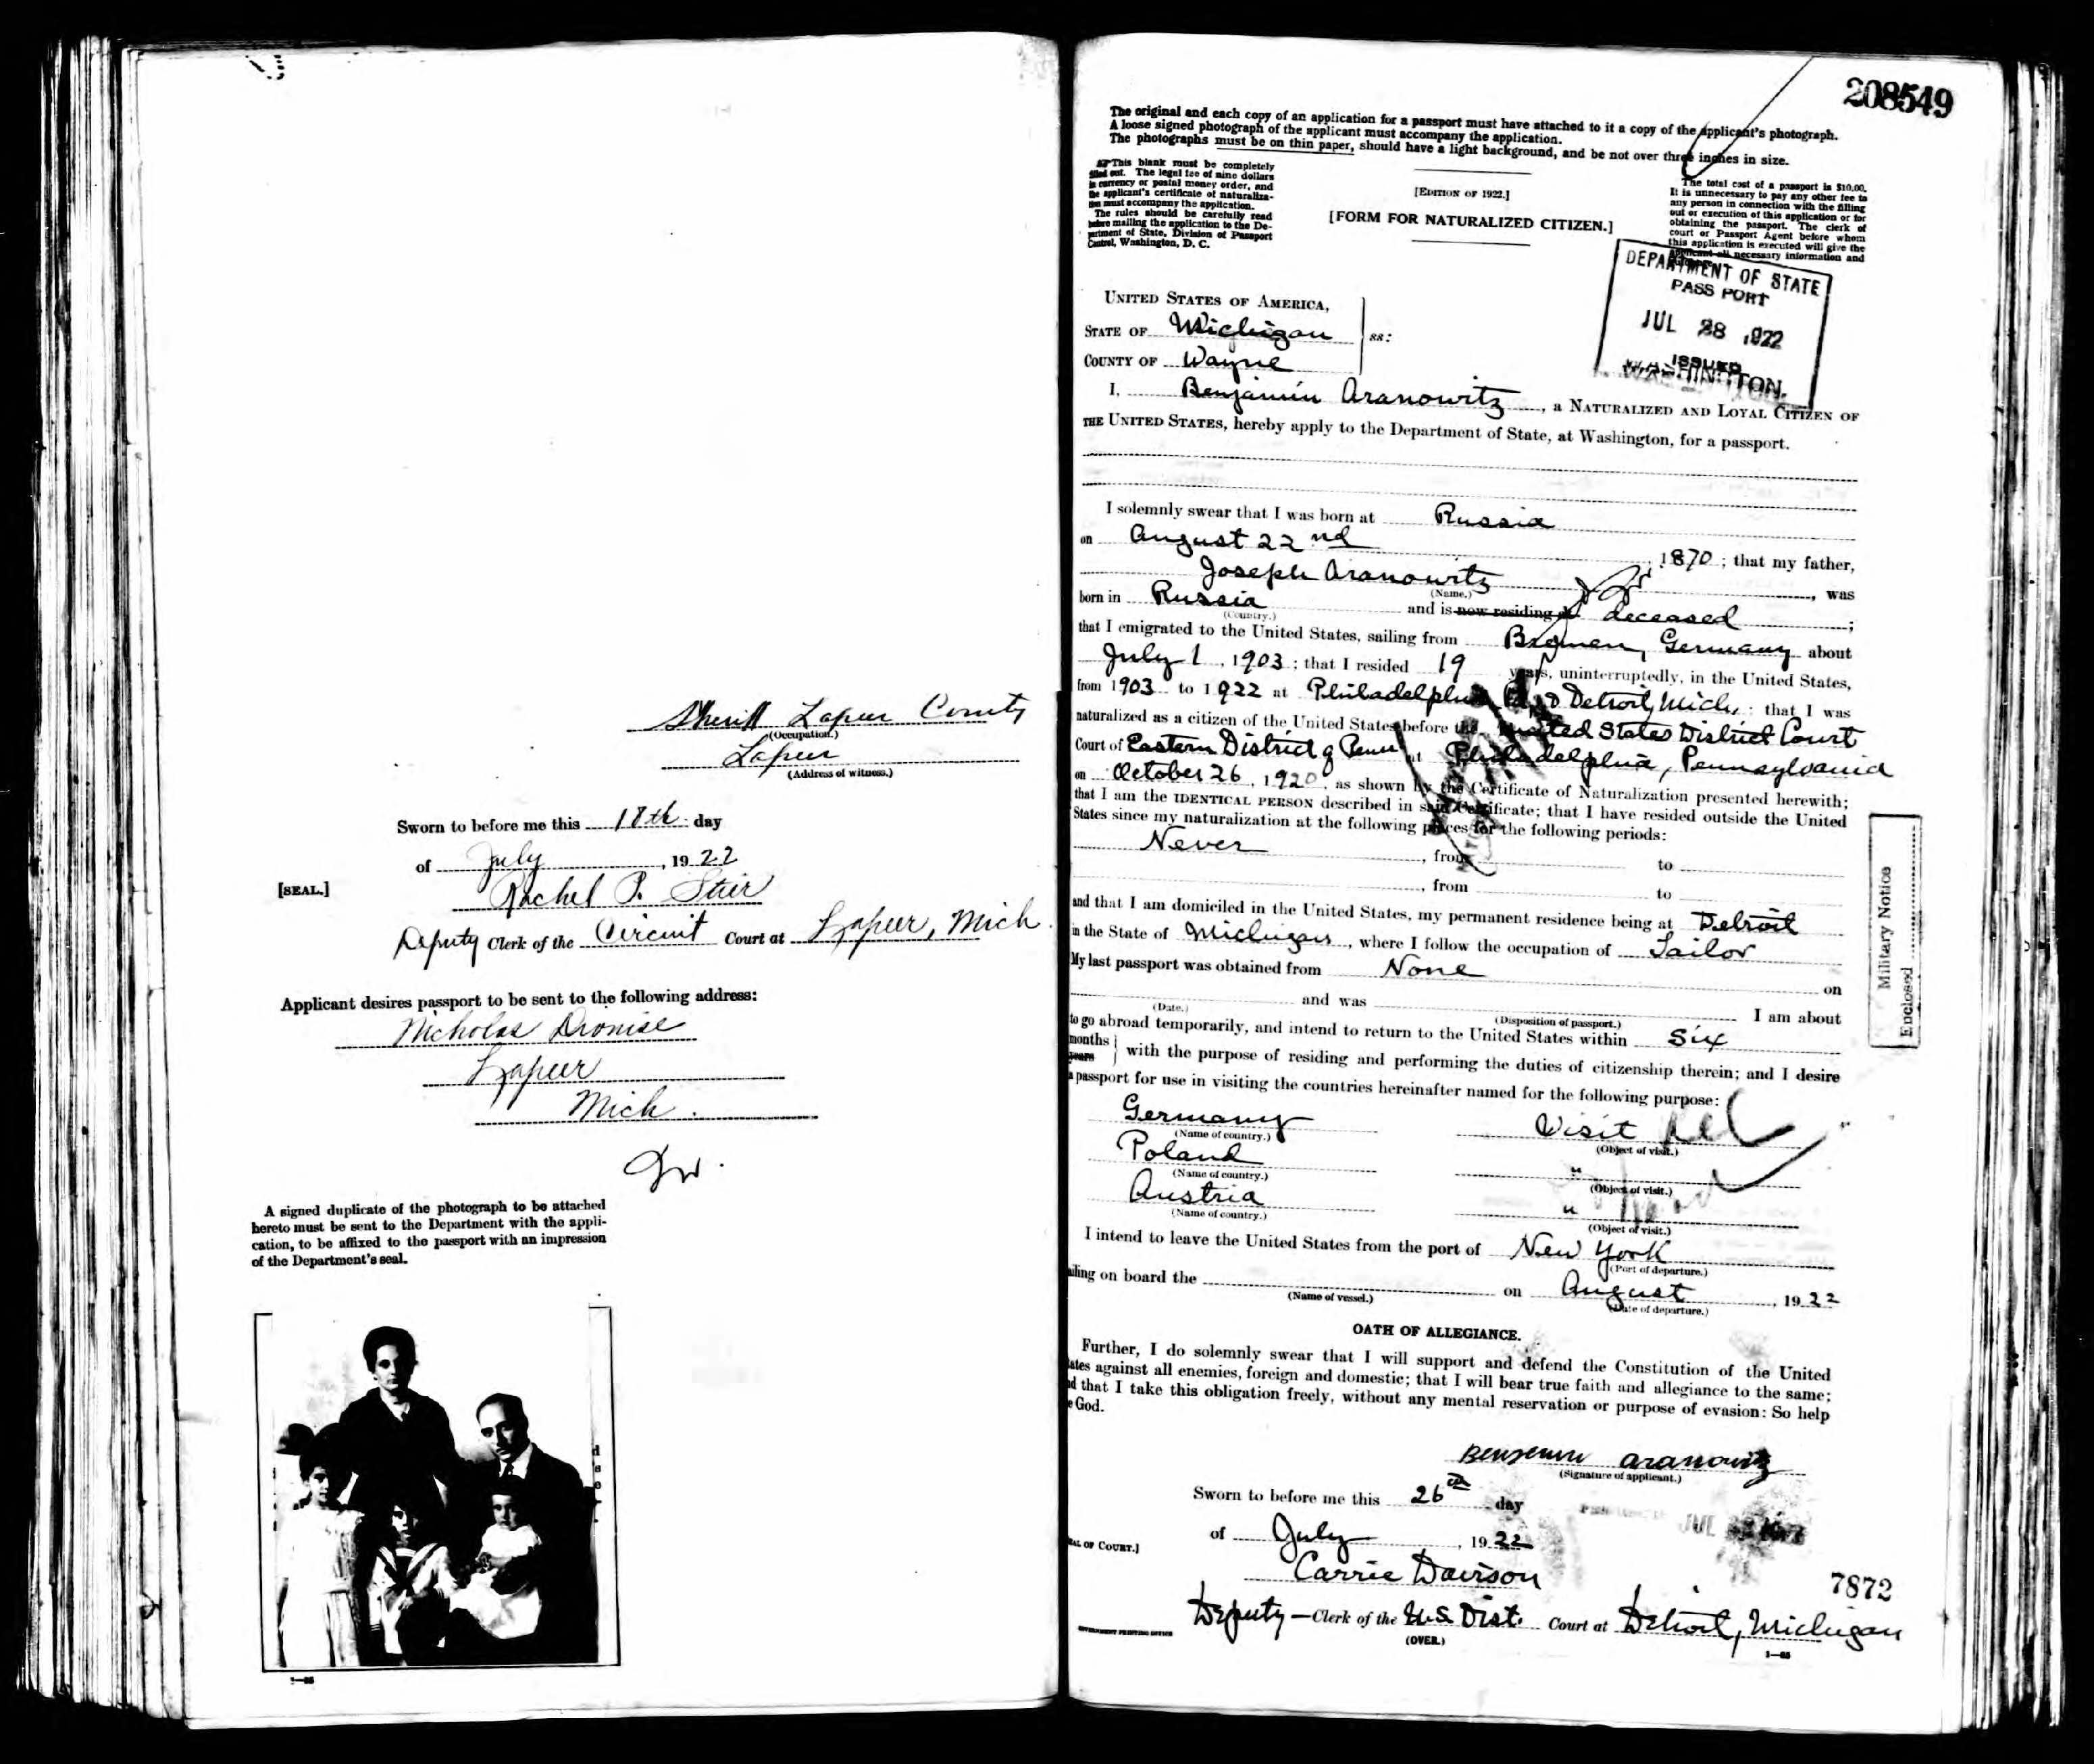 Sheriff Lapeer County
(Occupation.)
Lapeer
(Address of witness.)
Sworn to before me this 18th day
of July, 1922
[SEAL.]
Rachel P. Stier
Deputy Clerk of the Circuit Court at Lapeer, Mich.
Applicant desires passport to be sent to the following address:
Nicholas Dionise
Lapeer
Mich.
A signed duplicate of the photograph to be attached
hereto must be sent to the Department with the appli-
cation, to be affixed to the passport with an impression
of the Department's seal.
208549
The original and each copy of an application for a passport must have attached to it a copy of the applicant's photograph.
A loose signed photograph of the applicant must accompany the application.
The photographs must be on thin paper, should have a light background, and be not over three inches in size.
This blank must be completely
filled out. The legal fee of nine dollars
in currency or postal money order, and
the applicant's certificate of naturaliza-
tion must accompany the application.
The rules should be carefully read
before mailing the application to the De-
partment of State, Division of Passport
Control, Washington, D. C.
[EDITION OF 1922.]
[FORM FOR NATURALIZED CITIZEN.]
The total cost of a passport is $10.00.
It is unnecessary to pay any other fee to
any person in connection with the filling
out or execution of this application or for
obtaining the passport. The clerk of
court or Passport Agent before whom
this application is executed will give the
applicant all necessary information and
DEPARTMENT OF STATE
PASSPORT
JUL 28 1922
ISSUED
WASHINGTON.
UNITED STATES OF AMERICA,
STATE OF Michigan
ss:
COUNTY OF Wayne
I, Benjamin Aranowitz, a NATURALIZED AND LOYAL CITIZEN OF
THE UNITED STATES, hereby apply to the Department of State, at Washington, for a passport.
I solemnly swear that I was born at Russia
on August 22nd, 1870; that my father,
Joseph Aranowitz, was
(Name.)
born in Russia and is now residing at deceased;
(Country.)
that I emigrated to the United States, sailing from Bremen, Germany about
July 1, 1903; that I resided 19 years, uninterruptedly, in the United States,
from 1903 to 1922 at Philadelphia Pa & Detroit, Mich.; that I was
naturalized as a citizen of the United States before the United States District Court
Court of Eastern District of Penn at Philadelphia, Pennsylvania
on October 26, 1920, as shown by the Certificate of Naturalization presented herewith;
that I am the IDENTICAL PERSON described in said Certificate; that I have resided outside the United
States since my naturalization at the following places for the following periods:
Never, from to
, from to
and that I am domiciled in the United States, my permanent residence being at Detroit
in the State of Michigan, where I follow the occupation of Tailor
My last passport was obtained from None on
and was I am about
(Date.) (Disposition of passport.)
to go abroad temporarily, and intend to return to the United States within Six
months
years } with the purpose of residing and performing the duties of citizenship therein; and I desire
a passport for use in visiting the countries hereinafter named for the following purpose:
Germany Visit
(Name of country.) (Object of visit.)
Poland "
(Name of country.) (Object of visit.)
Austria "
(Name of country.) (Object of visit.)
I intend to leave the United States from the port of New York
(Port of departure.)
sailing on board the on August, 1922
(Name of vessel.) (Date of departure.)
OATH OF ALLEGIANCE.
Further, I do solemnly swear that I will support and defend the Constitution of the United
States against all enemies, foreign and domestic; that I will bear true faith and allegiance to the same;
and that I take this obligation freely, without any mental reservation or purpose of evasion: So help
me God.
Benjemin Aranowitz
(Signature of applicant.)
Sworn to before me this 26th day
of July, 1922
[SEAL OF COURT.]
Carrie Davison
7872
Deputy—Clerk of the U.S. Dist. Court at Detroit, Michigan
GOVERNMENT PRINTING OFFICE
(OVER.)
Military Notice
Enclosed